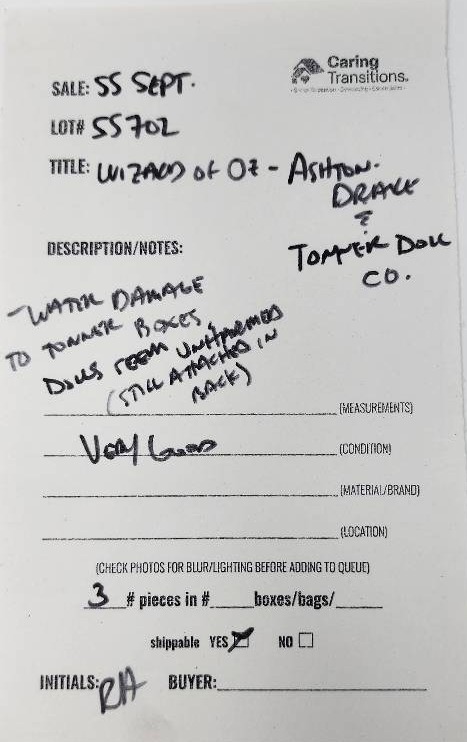 Caring
Transitions.
SALE: SS SEPT.
LOT# SS702
TITLE: WIZARD OF OZ - ASHTON-
DRAKE
&
TONNER DOLL
CO.
DESCRIPTION/NOTES:
-WATER DAMAGE
TO TONNER BOXES,
DOLLS SEEM UNHARMED
(STILL ATTACHED IN
BACK)
(MEASUREMENTS)
VERY GOOD (CONDITION)
(MATERIAL/BRAND)
(LOCATION)
(CHECK PHOTOS FOR BLUR/LIGHTING BEFORE ADDING TO QUEUE)
3 # pieces in #____boxes/bags/____
shippable YES NO
INITIALS: RH BUYER: